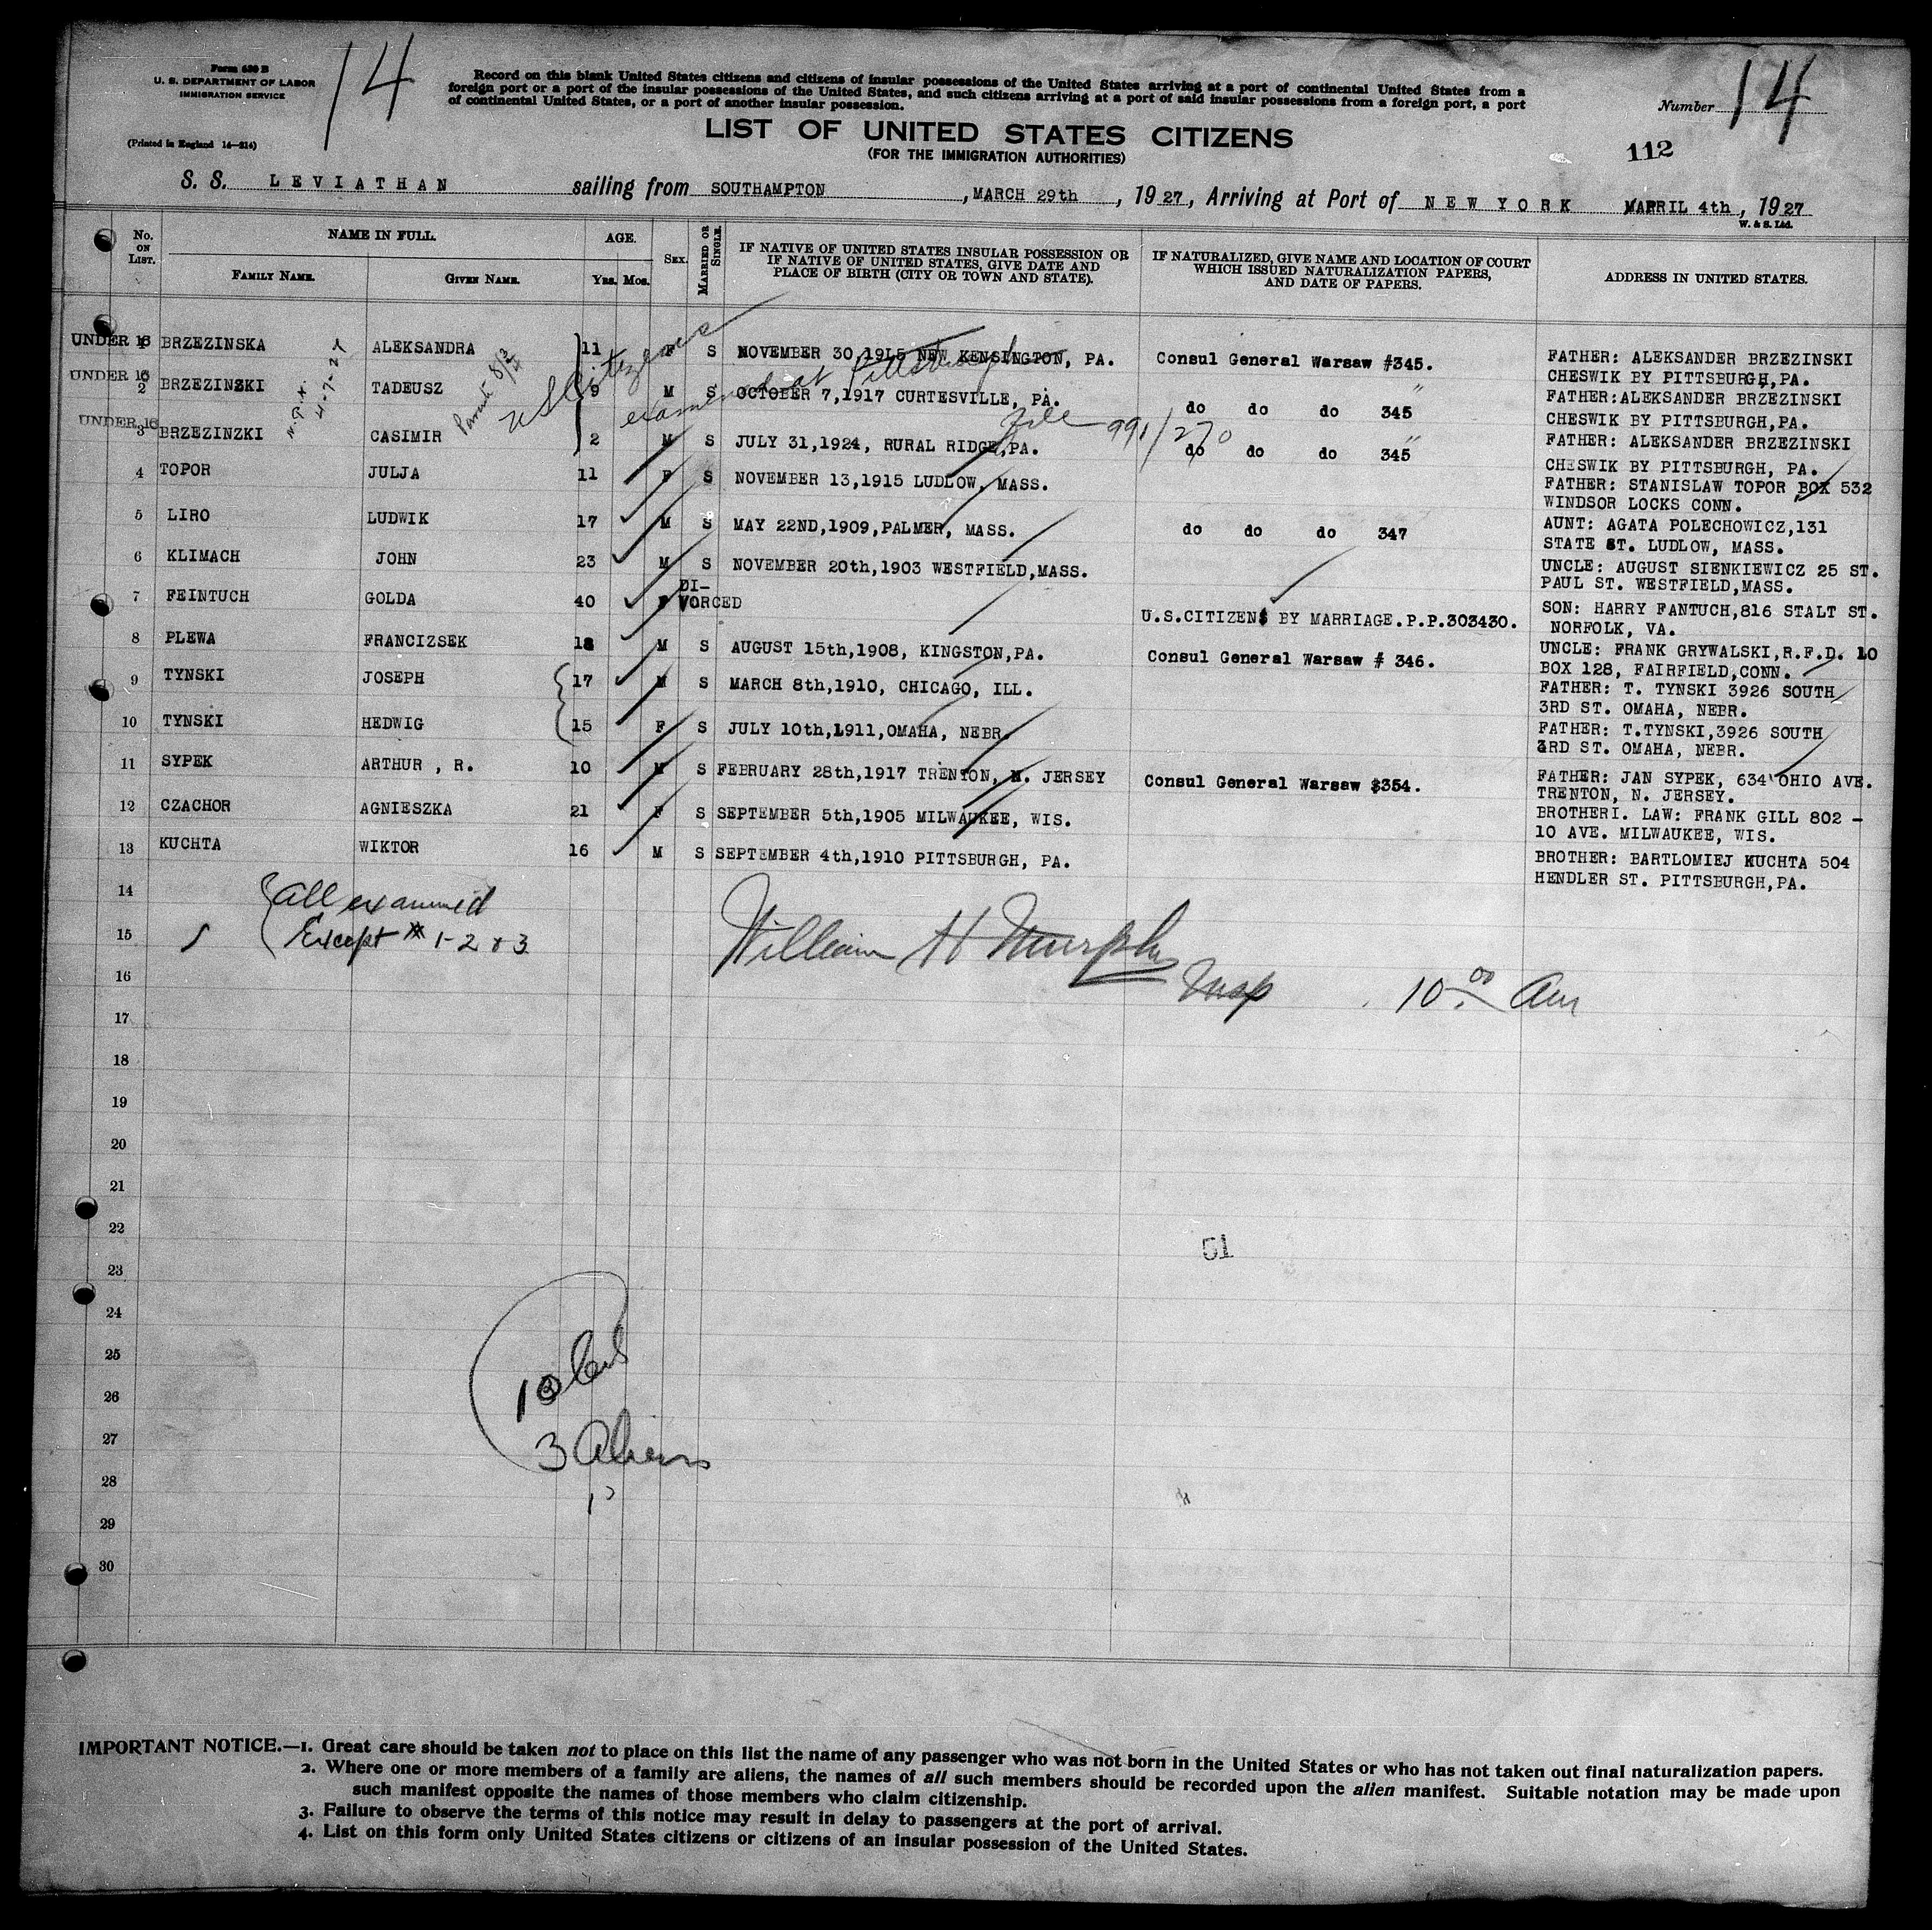 Form 630 B
U. S. DEPARTMENT OF LABOR
IMMIGRATION SERVICE
(Printed in England 14—214)
14
Record on this blank United States citizens and citizens of insular possessions of the United States arriving at a port of continental United States from a
foreign port or a port of the insular possessions of the United States, and such citizens arriving at a port of said insular possessions from a foreign port, a port
of continental United States, or a port of another insular possession.
Number 14
LIST OF UNITED STATES CITIZENS
(FOR THE IMMIGRATION AUTHORITIES)
112
S. S. LEVIATHAN sailing from SOUTHAMPTON, MARCH 29th, 1927, Arriving at Port of NEW YORK APRIL 4th, 1927
W. & S. Ltd.
No. ON LIST. NAME IN FULL. FAMILY NAME. GIVEN NAME. AGE. Yrs. Mos. SEX. MARRIED OR SINGLE. IF NATIVE OF UNITED STATES INSULAR POSSESSION OR IF NATIVE OF UNITED STATES, GIVE DATE AND PLACE OF BIRTH (CITY OR TOWN AND STATE). IF NATURALIZED, GIVE NAME AND LOCATION OF COURT WHICH ISSUED NATURALIZATION PAPERS, AND DATE OF PAPERS. ADDRESS IN UNITED STATES.
UNDER 16 1 BRZEZINSKA ALEKSANDRA 11 F S NOVEMBER 30,1915 NEW KENSINGTON, PA. Consul General Warsaw #345. FATHER: ALEKSANDER BRZEZINSKI
CHESWIK BY PITTSBURGH,PA.
UNDER 16 2 BRZEZINSKI TADEUSZ 9 M S OCTOBER 7,1917 CURTESVILLE, PA. do do do 345 " FATHER:ALEKSANDER BRZEZINSKI
CHESWIK BY PITTSBURGH,PA.
UNDER 16 3 BRZEZINZKI CASIMIR 2 M S JULY 31,1924, RURAL RIDGE,PA. do do do 345 " FATHER: ALEKSANDER BRZEZINSKI
CHESWIK BY PITTSBURGH, PA.
N.P.A. 4-7-27
US Citizens
examined at Pittsburgh
File 991/270
4 TOPOR JULJA 11 F S NOVEMBER 13,1915 LUDLOW, MASS. FATHER: STANISLAW TOPOR BOX 532
WINDSOR LOCKS CONN.
5 LIRO LUDWIK 17 M S MAY 22ND,1909,PALMER, MASS. do do do 347 AUNT: AGATA POLECHOWICZ,131
STATE ST. LUDLOW, MASS.
6 KLIMACH JOHN 23 M S NOVEMBER 20th,1903 WESTFIELD,MASS. UNCLE: AUGUST SIENKIEWICZ 25 ST.
PAUL ST. WESTFIELD,MASS.
7 FEINTUCH GOLDA 40 F DI-VORCED U.S.CITIZENS BY MARRIAGE.P.P.303430. SON: HARRY FANTUCH,816 STALT ST.
NORFOLK, VA.
8 PLEWA FRANCIZSEK 18 M S AUGUST 15th,1908, KINGSTON,PA. Consul General Warsaw # 346. UNCLE: FRANK GRYWALSKI,R.F.D. 10
BOX 128, FAIRFIELD,CONN.
9 TYNSKI JOSEPH 17 M S MARCH 8th,1910, CHICAGO, ILL. FATHER: T. TYNSKI 3926 SOUTH
3RD ST. OMAHA, NEBR.
10 TYNSKI HEDWIG 15 F S JULY 10th,1911,OMAHA, NEBR. FATHER: T.TYNSKI,3926 SOUTH
3RD ST. OMAHA, NEBR.
11 SYPEK ARTHUR , R. 10 M S FEBRUARY 28th,1917 TRENTON, N. JERSEY Consul General Warsaw $354. FATHER: JAN SYPEK, 634 OHIO AVE.
TRENTON, N. JERSEY.
12 CZACHOR AGNIESZKA 21 F S SEPTEMBER 5th,1905 MILWAUKEE, WIS. BROTHERI. LAW: FRANK GILL 802 -
10 AVE. MILWAUKEE, WIS.
13 KUCHTA WIKTOR 16 M S SEPTEMBER 4th,1910 PITTSBURGH, PA. BROTHER: BARTLOMIEJ KUCHTA 504
HENDLER ST. PITTSBURGH,PA.
14 All examined
15 Except # 1-2 & 3 William H Murphy
16 Insp 10 00 Am
17
18
19
20
21
22
51
23
24
25
26
10
27
3 Aliens
28
29
30
IMPORTANT NOTICE.—1. Great care should be taken not to place on this list the name of any passenger who was not born in the United States or who has not taken out final naturalization papers.
2. Where one or more members of a family are aliens, the names of all such members should be recorded upon the alien manifest. Suitable notation may be made upon
such manifest opposite the names of those members who claim citizenship.
3. Failure to observe the terms of this notice may result in delay to passengers at the port of arrival.
4. List on this form only United States citizens or citizens of an insular possession of the United States.